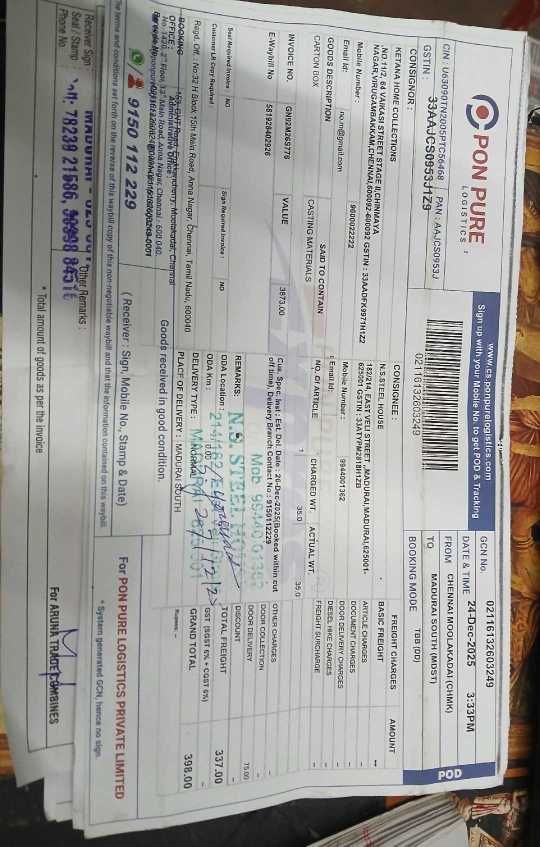 PON PURE
LOGISTICS
www.cs-ponpurelogistics.com
Sign up with your Mobile No. to get POD & Tracking
CIN : U63090TN2005PTC56468 PAN : AAJCS0953J
GSTIN : 33AAJCS0953J1Z9
02116132603249
GCN No. 02116132603249
DATE & TIME 24-Dec-2025 3:33PM
FROM CHENNAI MOOLAKADAI (CHMK)
TO MADURAI SOUTH (MDST)
BOOKING MODE TBB (DD)
POD
CONSIGNOR :
KETANA HOME COLLECTIONS
NO.11/2, 64 VAIKASI STREET STAGE II,CHINMAYA
NAGAR,VIRUGAMBAKKAM,CHENNAI,600092-600092 GSTIN : 33AADFK9971H1Z2
Mobile Number : 9600022222
Email Id: no.m@gmail.com
CONSIGNEE :
N.S.STEEL HOUSE
182/214, EAST VELI STREET ,MADURAI,MADURAI,625001-
625001 GSTIN : 33ATYPM2818H1ZB
Mobile Number : 9944001362
Email Id:
GOODS DESCRIPTION SAID TO CONTAIN NO. OF ARTICLE CHARGED WT. ACTUAL WT.
CARTON BOX CASTING MATERIALS 1 35.0 35.0
INVOICE NO. GN02M26S778 VALUE 3873.00
E-Waybill No 581928402926
Cus. Spec. Inst : Est. Del. Date : 26-Dec-2025(Booked within cut
off time) Delivery Branch Contact No : 9150112229
FREIGHT CHARGES AMOUNT
BASIC FREIGHT --
ARTICLE CHARGES --
DOCUMENT CHARGES --
DOOR DELIVERY CHARGES --
DIESEL HIKE CHARGES --
FREIGHT SURCHARGE --
OTHER CHARGES --
DOOR COLLECTION --
DOOR DELIVERY 75.00
DISCOUNT --
TOTAL FREIGHT 337.00
GST (SGST 9% + CGST 9%) --
GRAND TOTAL 398.00
Seal Required Invoice : NO Sign Required Invoice : NO
Customer LR Copy Required
REMARKS:
ODA Location :
ODA Km :
DELIVERY TYPE : NORMAL
PLACE OF DELIVERY : MADURAI SOUTH
N.S. STEEL HOUSE
Mob 9944001362
Regd. Off. : No:32 H Block, 15th Main Road, Anna Nagar, Chennai, Tamil Nadu, 600040
BOOKING
OFFICE
Administrative Office :
9150 112 229
Goods received in good condition.
( Receiver : Sign, Mobile No., Stamp & Date)
For PON PURE LOGISTICS PRIVATE LIMITED
* System generated GCN, hence no sign.
Receiver Sign :
Seal / Stamp :
Phone No.
Other Remarks :
For ARUNA TRADE COMBINES
* Total amount of goods as per the invoice